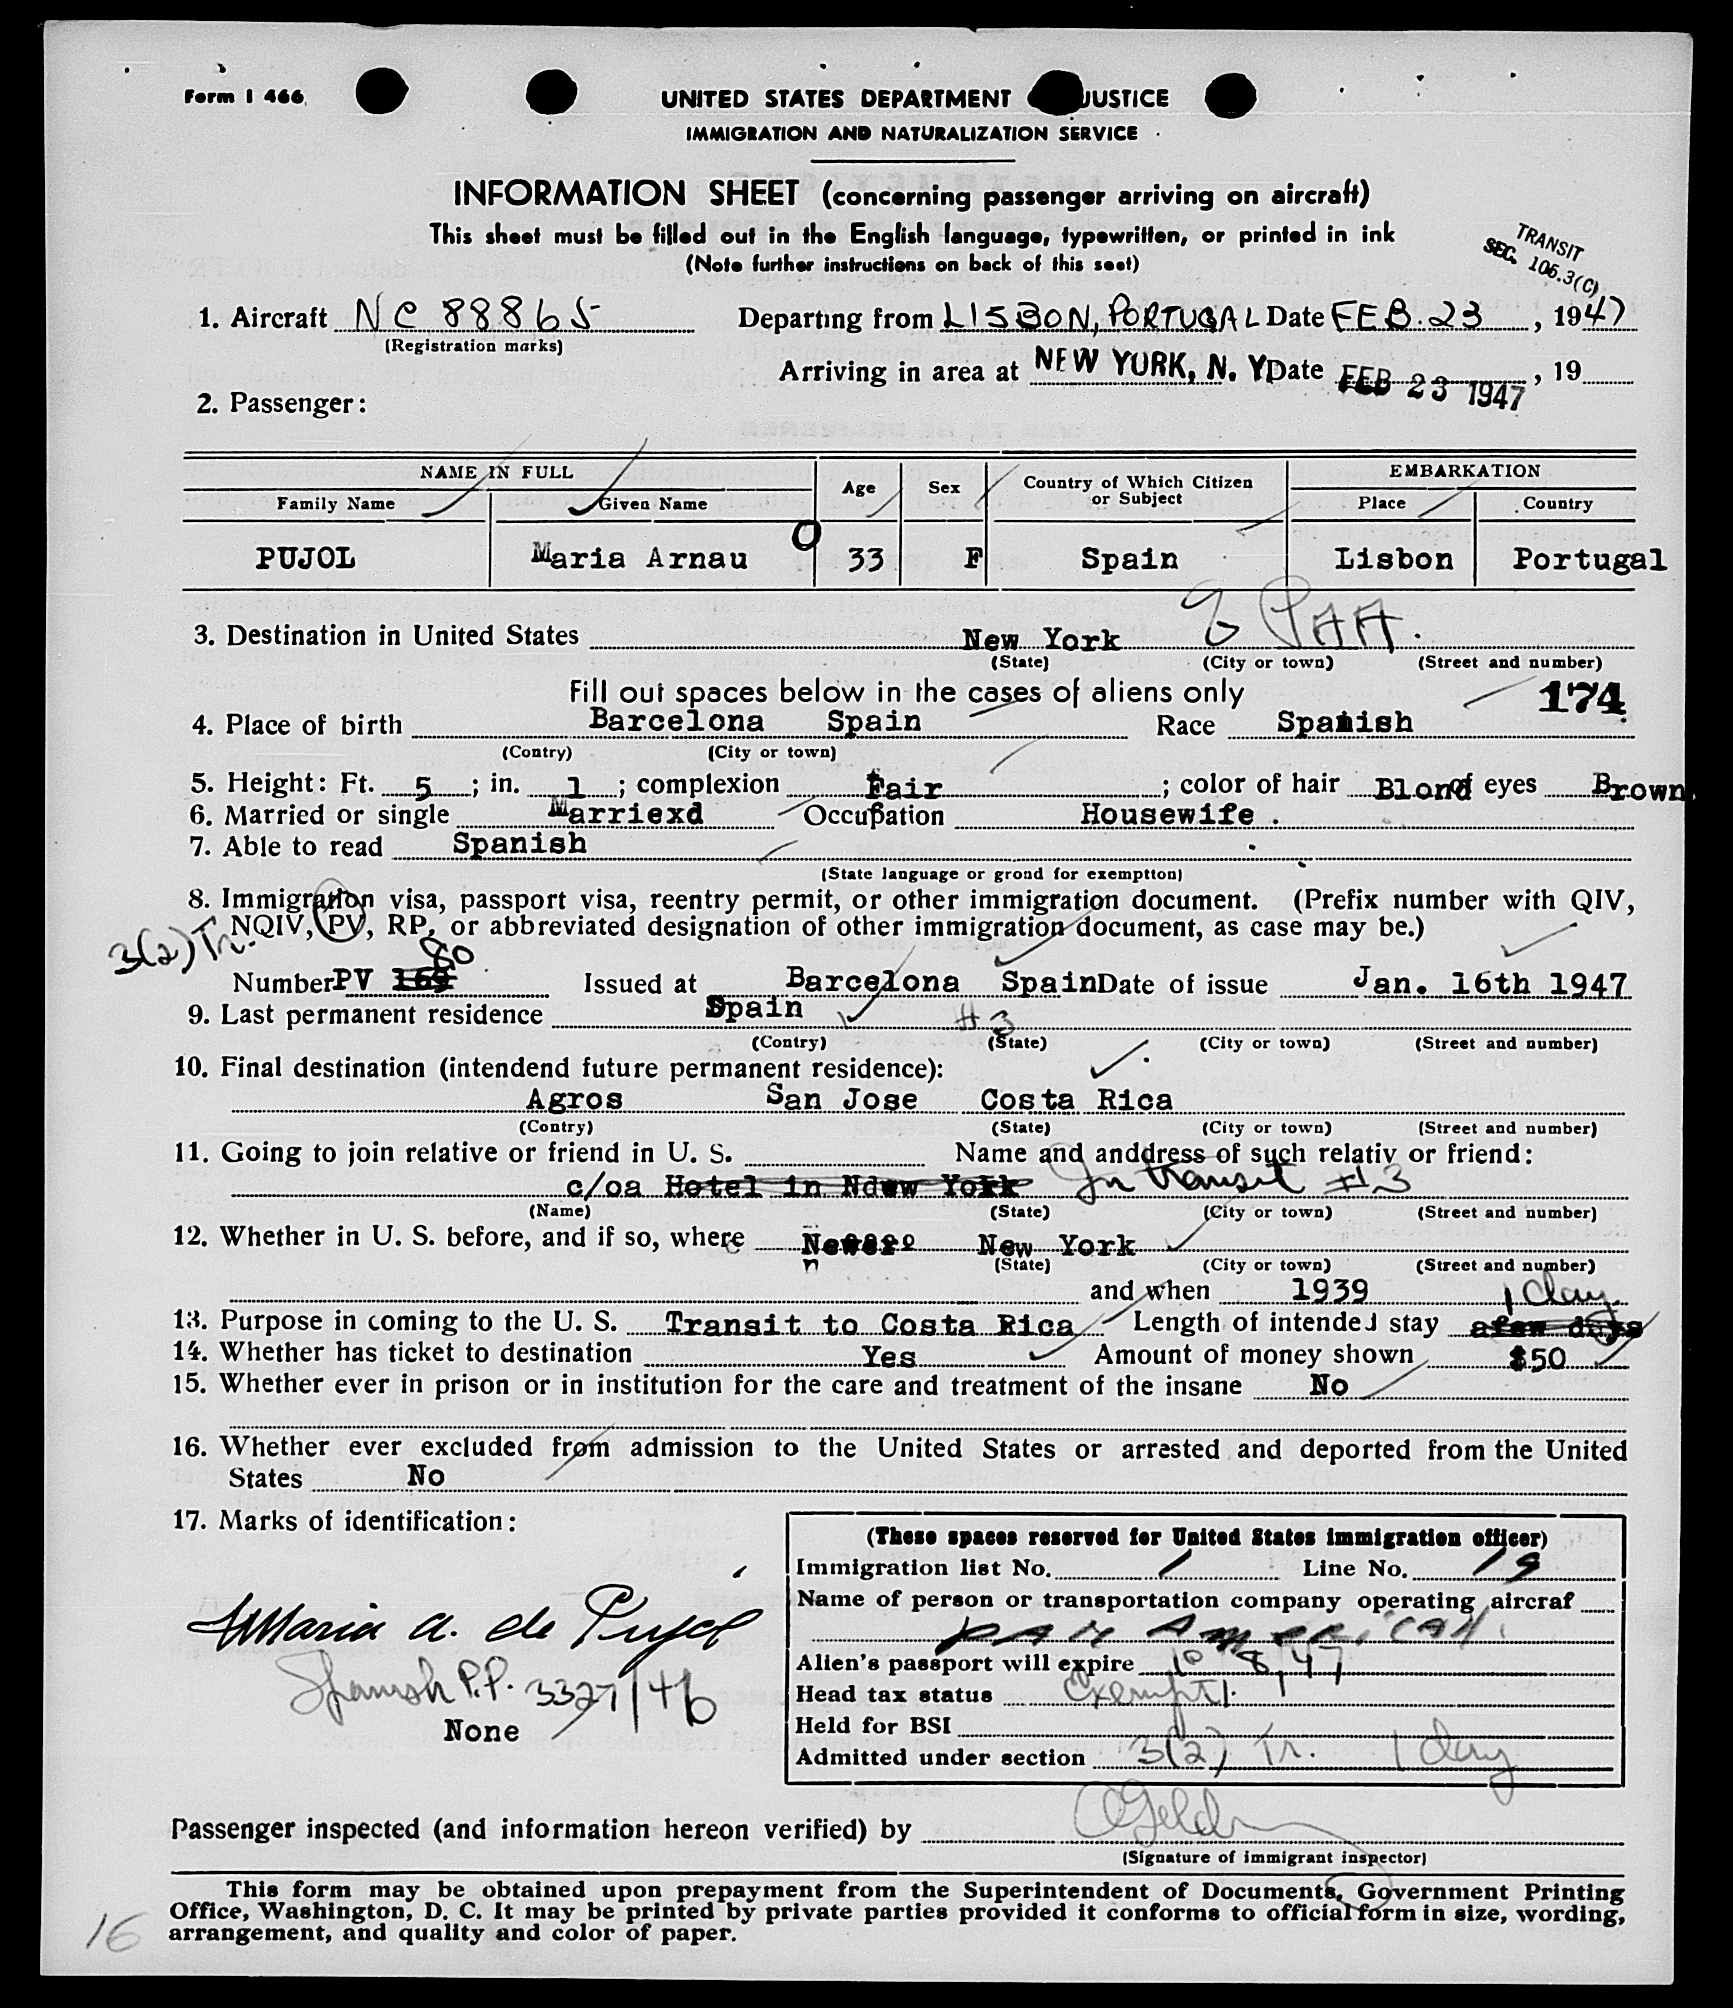 Form I 466
UNITED STATES DEPARTMENT JUSTICE
IMMIGRATION AND NATURALIZATION SERVICE
INFORMATION SHEET (concerning passenger arriving on aircraft)
This sheet must be filled out in the English language, typewritten, or printed in ink
(Note further instructions on back of this seet)
TRANSIT
SEC. 106.3(C)
1. Aircraft NC 88865 Departing from LISBON, PORTUGAL Date FEB. 23, 1947
(Registration marks)
Arriving in area at NEW YORK, N. Y Date FEB 23 1947, 19
2. Passenger:
NAME IN FULL Age Sex Country of Which Citizen or Subject EMBARKATION
Family Name Given Name Place Country
PUJOL Maria Arnau O 33 F Spain Lisbon Portugal
3. Destination in United States New York PAA.
(State) (City or town) (Street and number)
Fill out spaces below in the cases of aliens only 174
4. Place of birth Barcelona Spain Race Spanish
(Contry) (City or town)
5. Height: Ft. 5; in. 1; complexion Fair; color of hair Blond of eyes Brown.
6. Married or single Marriexd Occupation Housewife.
7. Able to read Spanish
(State language or grond for exemption)
8. Immigration visa, passport visa, reentry permit, or other immigration document. (Prefix number with QIV,
NQIV, PV, RP, or abbreviated designation of other immigration document, as case may be.)
3(2) Tr.
80
Number PV 169 Issued at Barcelona Spain Date of issue Jan. 16th 1947
9. Last permanent residence Spain #3
(Contry) (State) (City or town) (Street and number)
10. Final destination (intendend future permanent residence):
Agros San Jose Costa Rica
(Contry) (State) (City or town) (Street and number)
11. Going to join relative or friend in U. S. Name and anddress of such relativ or friend:
c/oa Hotel in Ndew York In transit #3
(Name) (State) (City or town) (Street and number)
12. Whether in U. S. before, and if so, where New York
(State) (City or town) (Street and number)
and when 1939 1 day
13. Purpose in coming to the U. S. Transit to Costa Rica Length of intended stay afew days
14. Whether has ticket to destination Yes Amount of money shown $50
15. Whether ever in prison or in institution for the care and treatment of the insane No
16. Whether ever excluded from admission to the United States or arrested and deported from the United
States No
17. Marks of identification:
Maria A. de Pujol
Spanish P.P. 3327/46
None
(These spaces reserved for United States immigration officer)
Immigration list No. 1 Line No. 19
Name of person or transportation company operating aircraf
PAN AMERICAN.
Alien's passport will expire 10/8/47
Head tax status Exempt
Held for BSI
Admitted under section 3(2) Tr. 1 day
Passenger inspected (and information hereon verified) by
(Signature of immigrant inspector)
This form may be obtained upon prepayment from the Superintendent of Documents, Government Printing
Office, Washington, D. C. It may be printed by private parties provided it conforms to official form in size, wording,
arrangement, and quality and color of paper.
16